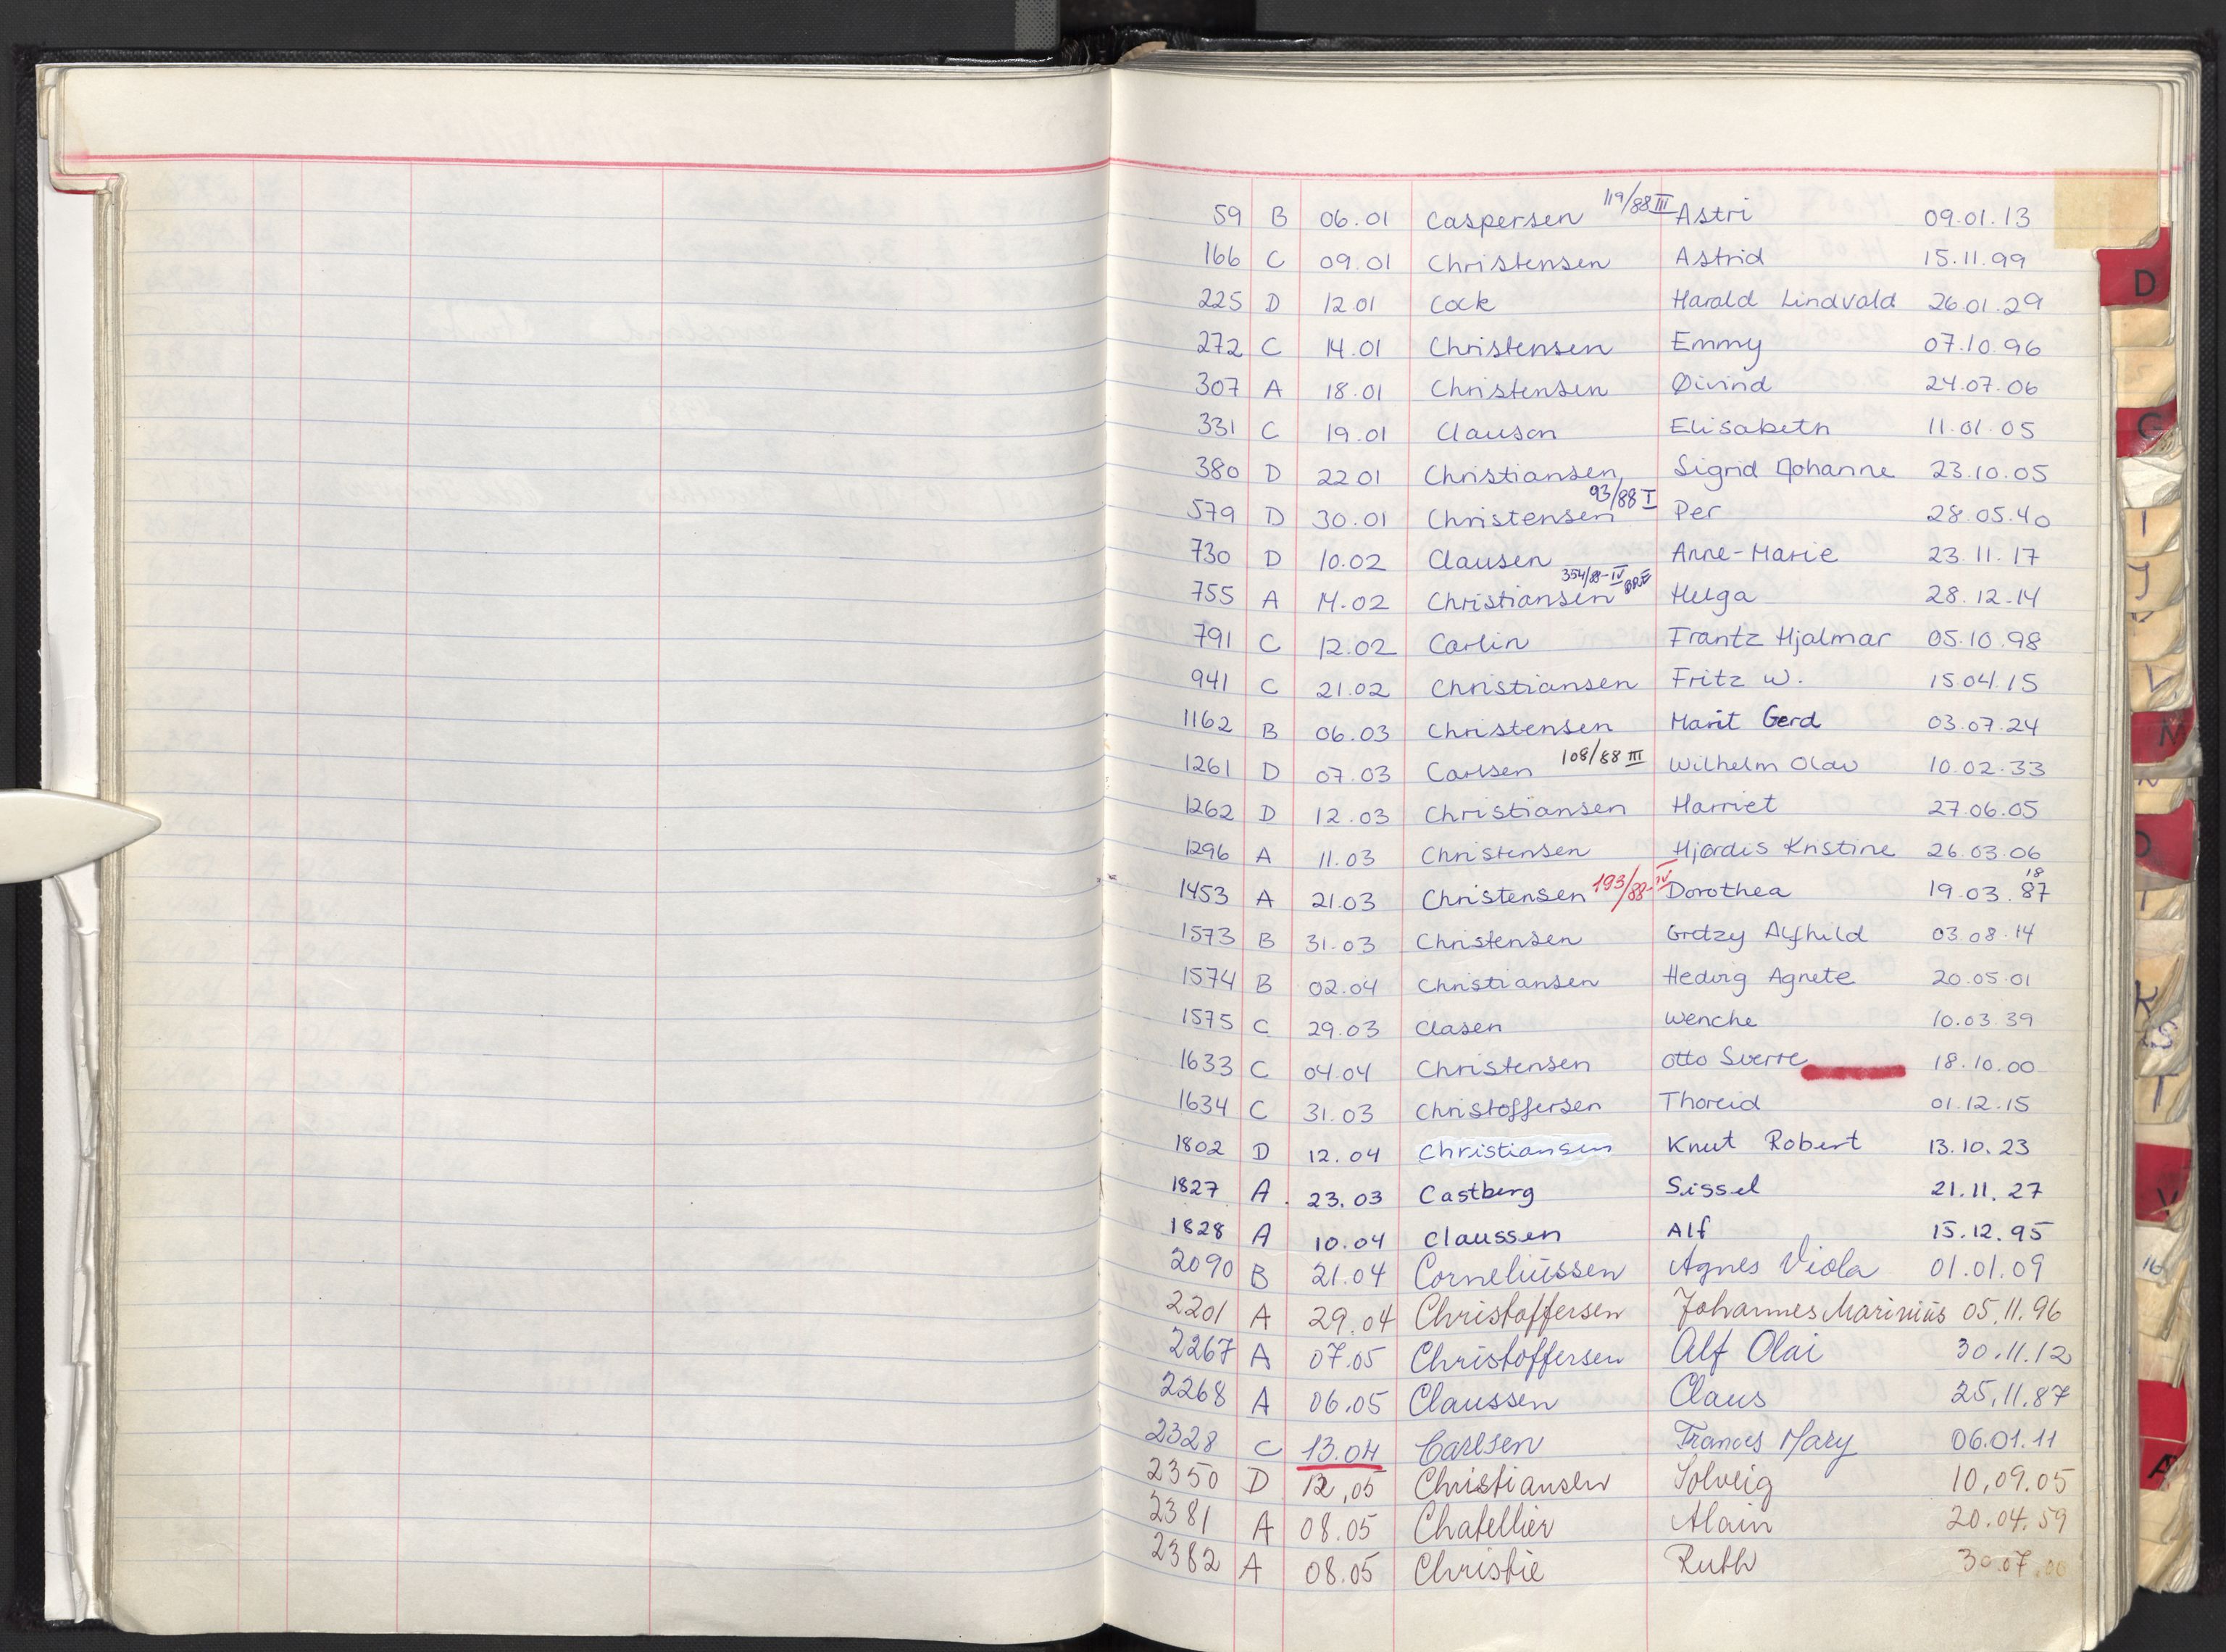 59 B 06.01 Caspersen 119/88 III Astri 09.01.13
166 C 09.01 Christensen Astrid 15.11.99
225 D 12.01 Cock Harald Lindvald 26.01.29
272 C 14.01 Christensen Emmy 07.10.96
307 A 18.01 Christensen Øivind 24.07.06
331 C 19.01 Clauson Elisabeth 11.01.05
380 D 22.01 Christiansen Sigrid Johanne 23.10.05
579 D 30.01 Christensen 93/88 I Per 28.05.40
730 D 10.02 Clausen Anne-Marie 23.11.17
755 A 11.02 Christiansen 354/88-IV BRE Helga 28.12.14
791 C 12.02 Carlin Frantz Hjalmar 05.10.98
941 C 21.02 Christiansen Fritz W. 15.04.15
1162 B 06.03 Christensen Marit Gerd 03.07.24
1261 D 07.03 Carlsen 108/88 III Wilhelm Olav 10.02.33
1262 D 12.03 Christiansen Harriet 27.06.05
1296 A 11.03 Christensen Hjørdis Kristine 26.03.06
1453 A 21.03 Christensen 193/88-IV Dorothea 19.03.1887
1573 B 31.03 Christensen Gretzy Alfhild 03.08.14
1574 B 02.04 Christiansen Hedvig Agnete 20.05.01
1575 C 29.03 Clasen Wenche 10.03.39
1633 C 04.04 Christensen Otto Sverre 18.10.00
1634 C 31.03 Christoffersen Thoreid 01.12.15
1802 D 12.04 Christiansen Knut Robert 13.10.23
1827 A. 23.03 Castberg Sissel 21.11.27
1828 A 10.04 Claussen Alf 15.12.95
2090 B 21.04 Corneliussen Agnes Viola 01.01.09
2201 A 29.04 Christoffersen Johannes Marinius 05.11.96
2267 A 07.05 Christoffersen Alf Olai 30.11.12
2268 A 06.05 Claussen Claus 25.11.87
2328 C 13.04 Carlsen Frances Mary 06.01.11
2350 D 12.05 Christiansen Solveig 10.09.05
2381 A 08.05 Chatellier Alain 20.04.59
2382 A 08.05 Christie Ruth 30.07.00
D
G
I
J
L
M
N
O
K
S
T
V
16
A